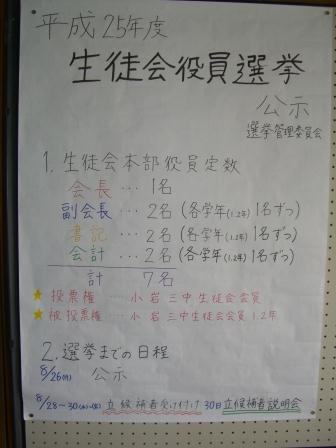 平成25年度
生徒会役員選挙
公示
選挙管理委員会
1. 生徒会本部役員定数
会長 … 1名
副会長 … 2名 (各学年(1.2年)1名ずつ)
書記 … 2名 (各学年(1.2年)1名ずつ)
会計 … 2名 (各学年(1.2年)1名ずつ)
計 7名
★ 投票権 …… 小岩三中生徒会会員
★ 被投票権 …… 小岩三中生徒会会員 1.2年
2. 選挙までの日程
8/26(月) 公示
8/28~30(水)~(金) 立候補者受け付け 30日立候補者説明会